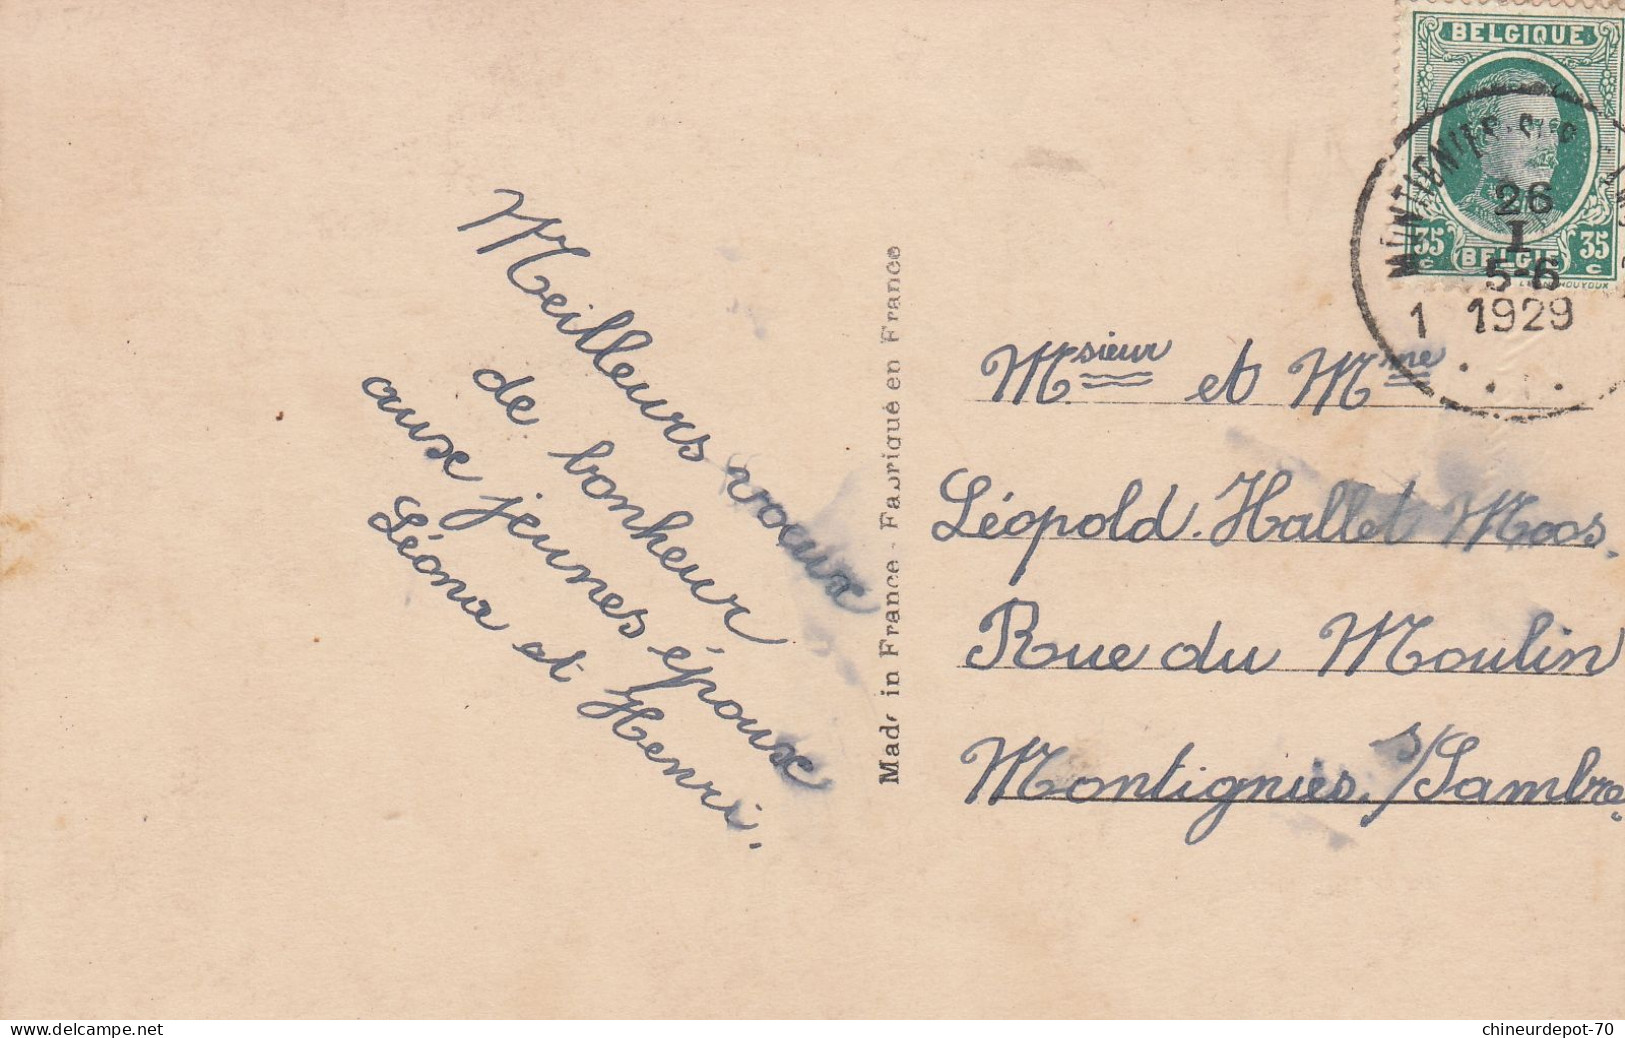 Meilleurs voeux
de bonheur
aux jeunes époux
Léona et Henri.
Made in France - Fabrique en France
BELGIQUE
35 c BELGIE 35 c
MONTIGNIES
26
I
5-6
1 1929
Msieur et Mme
Léopold. Hallet Moos.
Rue du Moulin
Montignies s/Sambre
delcampe.net
chineurdepot-70